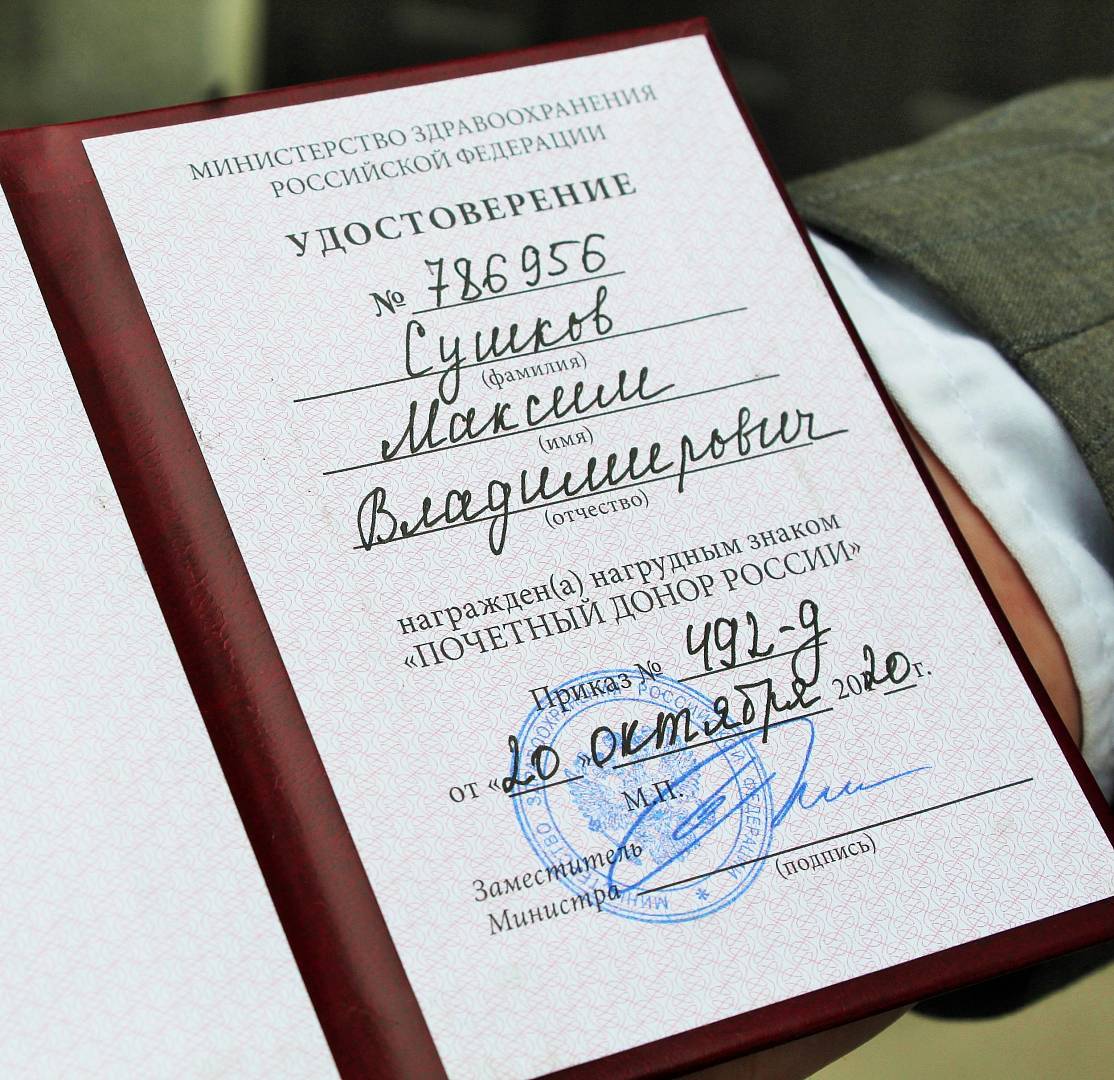 МИНИСТЕРСТВО ЗДРАВООХРАНЕНИЯ
РОССИЙСКОЙ ФЕДЕРАЦИИ
УДОСТОВЕРЕНИЕ
№ 786956
Сушков
(фамилия)
Максим
(имя)
Владимирович
(отчество)
награжден(а) нагрудным знаком
«ПОЧЕТНЫЙ ДОНОР РОССИИ»
Приказ № 492-д
от «20» октября 2020 г.
М.П.
Заместитель
Министра
(подпись)
МИНИСТЕРСТВО ЗДРАВООХРАНЕНИЯ РОССИЙСКОЙ ФЕДЕРАЦИИ *